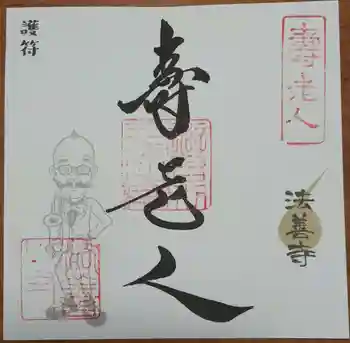 壽老人
護符
壽老人
法善寺